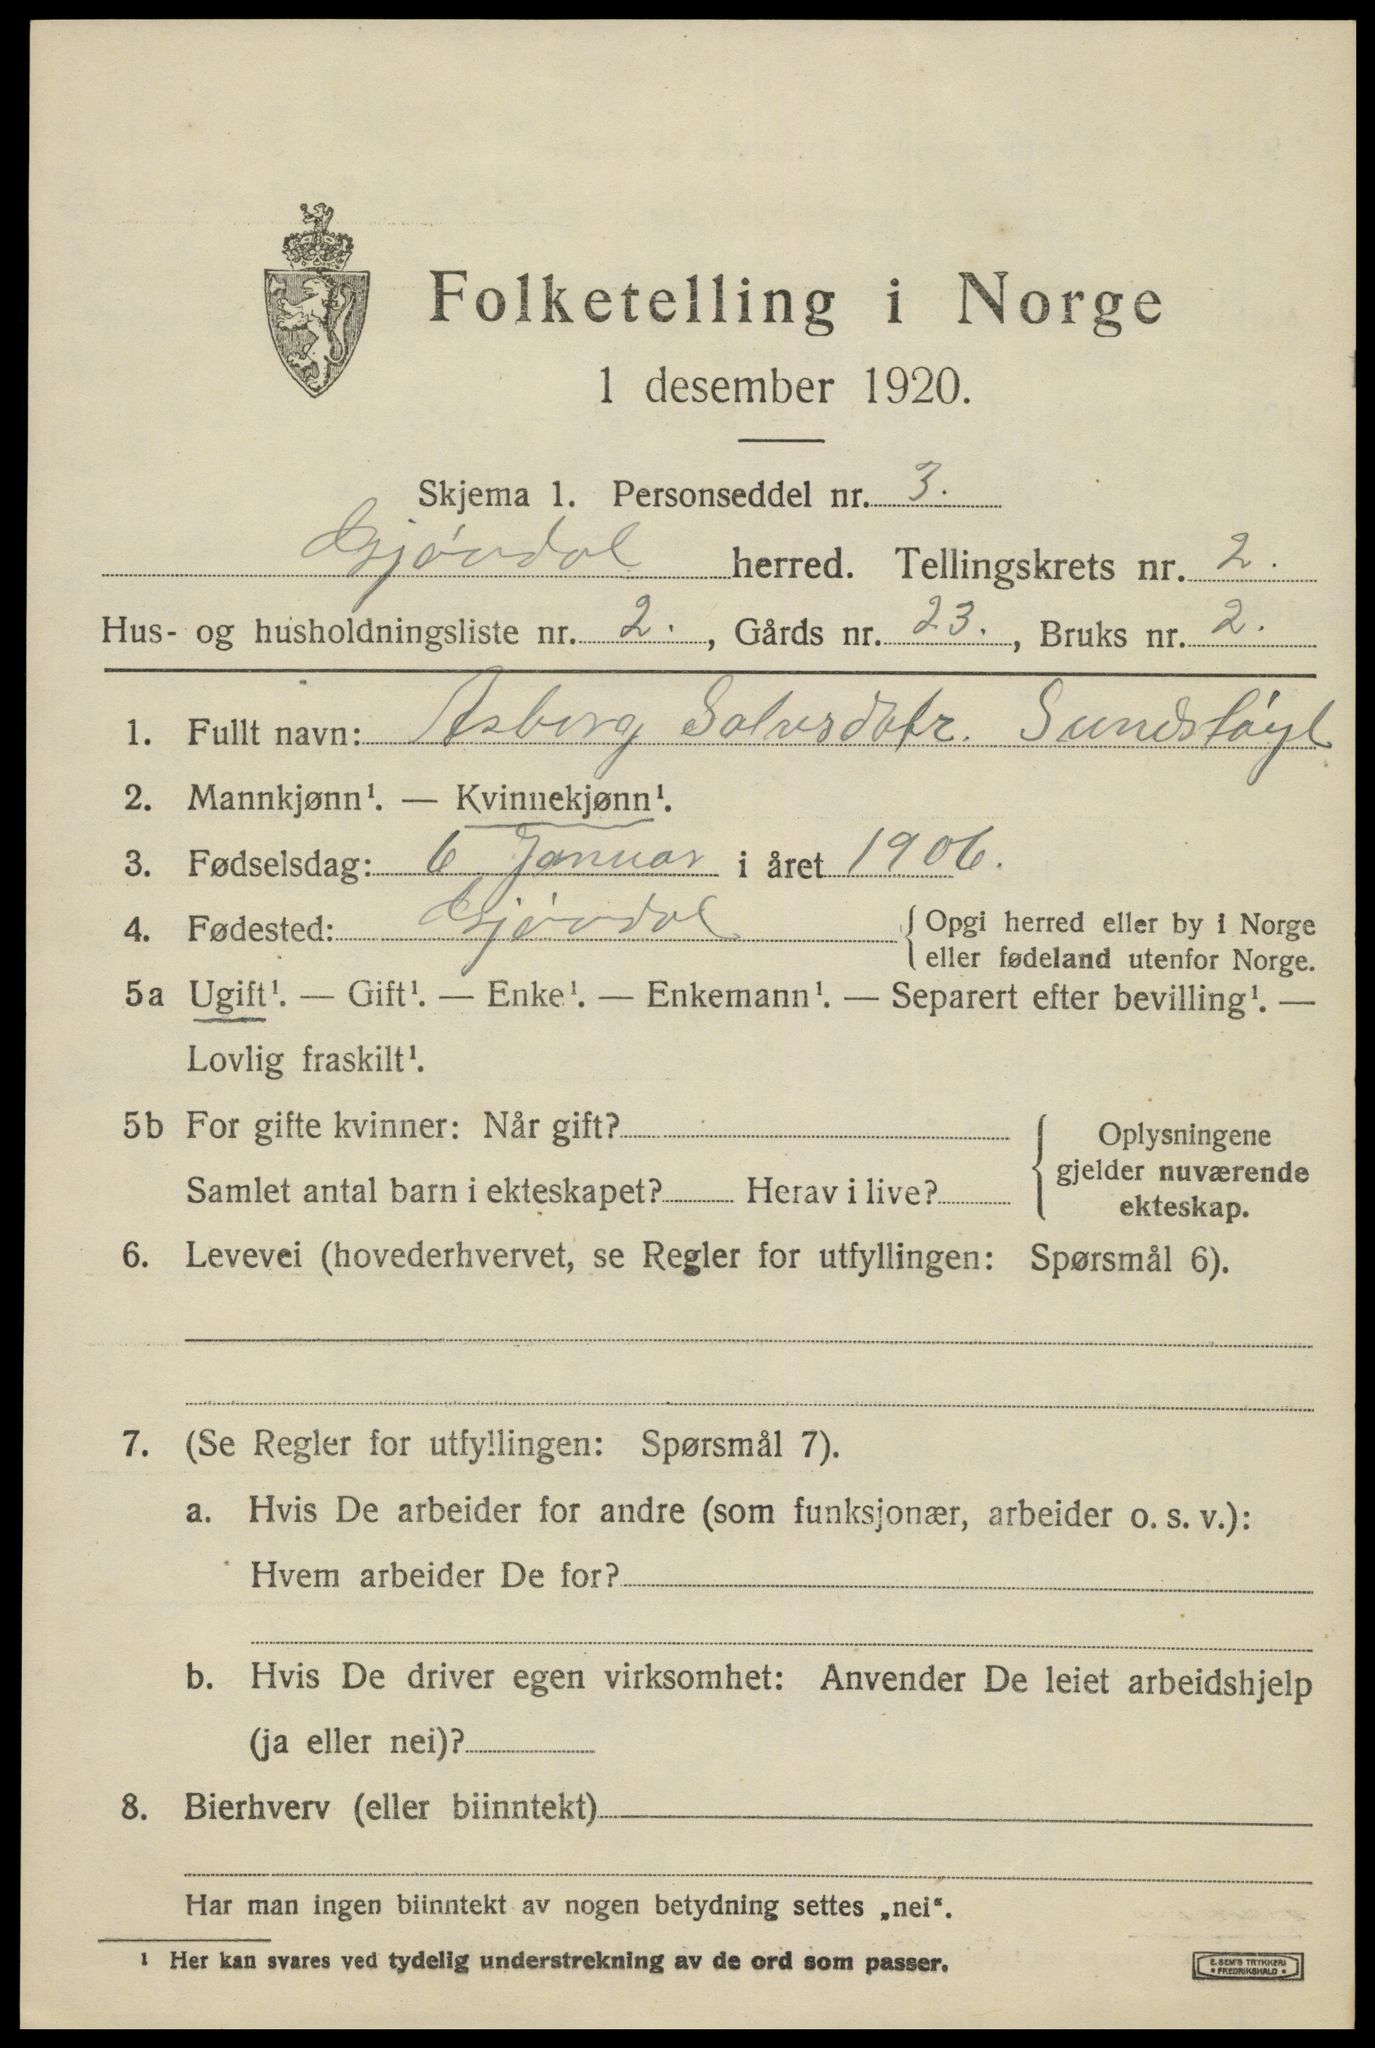 Folketelling i Norge
1 desember 1920.
Skjema 1. Personseddel nr. 3.
Gjøvdal herred. Tellingskrets nr. 2.
Hus- og husholdningsliste nr. 2., Gårds nr. 23., Bruks nr. 2.
1. Fullt navn: Asborg Salvesdotr. Sundstøyl
2. Mannkjønn¹. — Kvinnekjønn¹.
3. Fødselsdag: 6 Januar i året 1906.
4. Fødested: Gjøvdal {Opgi herred eller by i Norge
eller fødeland utenfor Norge.
5a Ugift¹. — Gift¹. — Enke¹. — Enkemann¹. — Separert efter bevilling¹. —
Lovlig fraskilt¹.
5b For gifte kvinner: Når gift? Oplysningene
gjelder nuværende
Samlet antal barn i ekteskapet? Herav i live? ekteskap.
6. Levevei (hovederhvervet, se Regler for utfyllingen: Spørsmål 6).
7. (Se Regler for utfyllingen: Spørsmål 7).
a. Hvis De arbeider for andre (som funksjonær, arbeider o. s. v.):
Hvem arbeider De for?
b. Hvis De driver egen virksomhet: Anvender De leiet arbeidshjelp
(ja eller nei)?
8. Bierhverv (eller biinntekt)
Har man ingen biinntekt av nogen betydning settes „nei“.
¹ Her kan svares ved tydelig understrekning av de ord som passer.
E. SEM'S TRYKKERI
* FREDRIKSHALD *